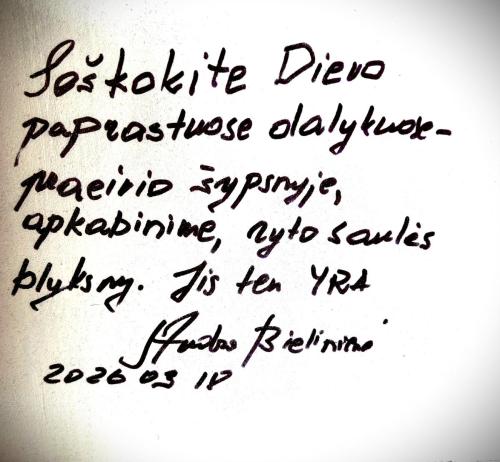 Ieškokite Dievo
paprastuose dalykuose-
praeivio šypsnyje,
apkabinime, ryto saulės
blyksny. Jis ten YRA
2026 03 18